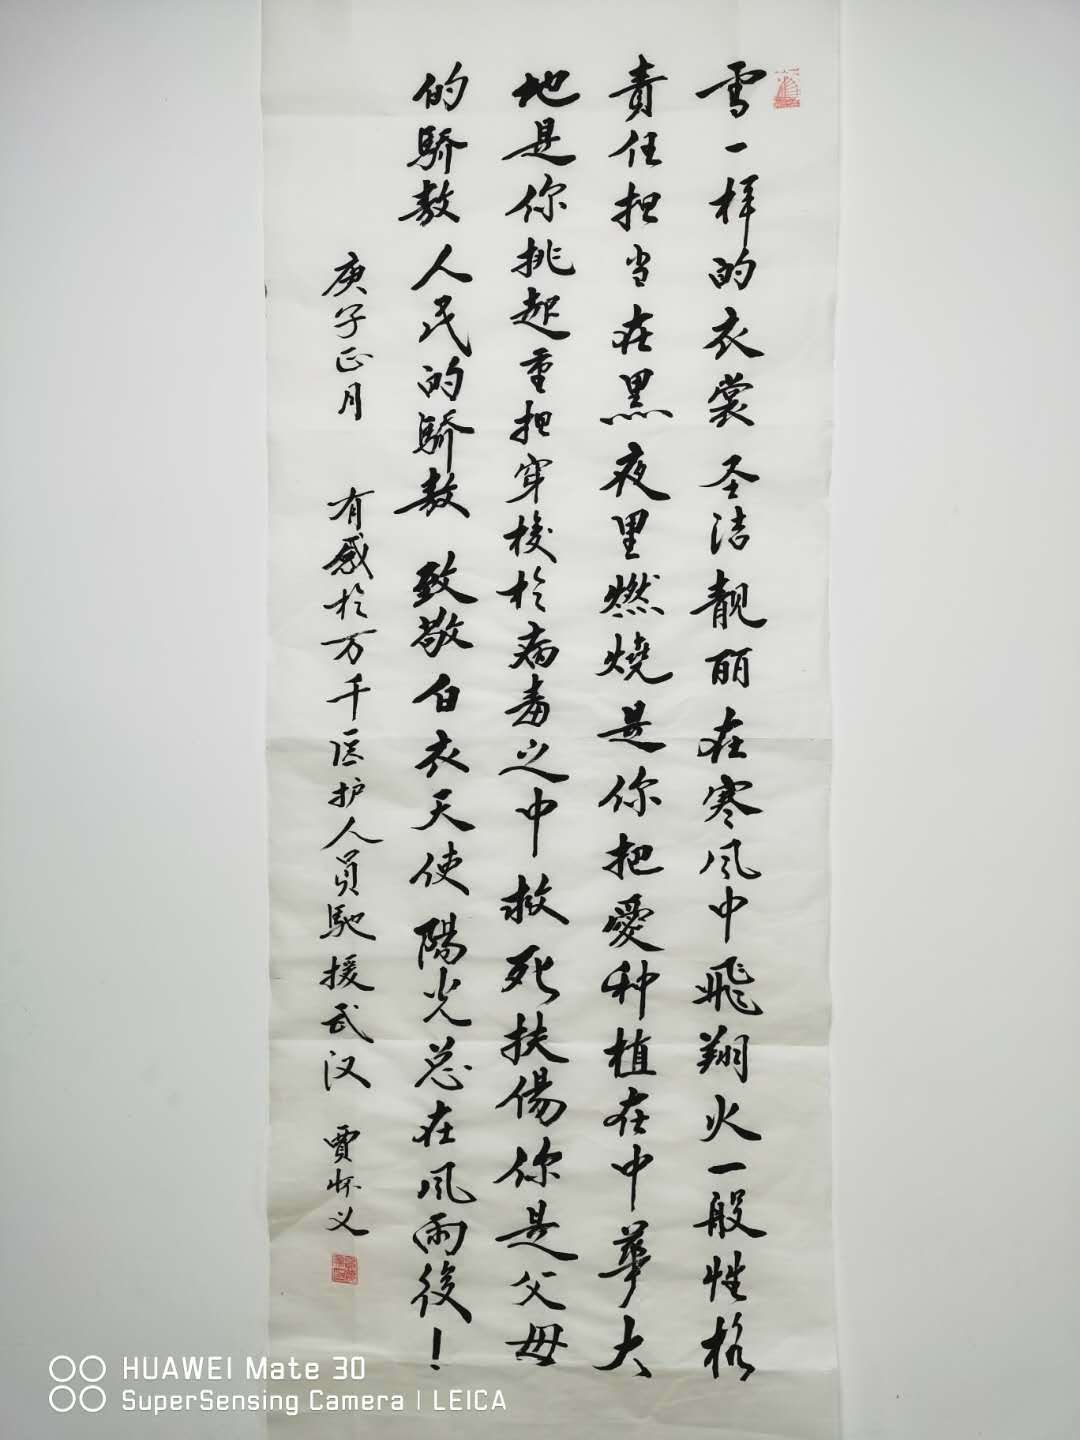 雪一样的衣裳圣洁靓丽在寒风中飛翔火一般性格
责任担当在黑夜里燃燒是你把愛种植在中華大
地是你挑起重担穿梭於病毒之中救死扶傷你是父母
的驕敖人民的驕敖致敬白衣天使陽光总在风雨後！
庚子正月 有感於万千医护人員馳援武汉 賈怀义
HUAWEI Mate 30
SuperSensing Camera | LEICA